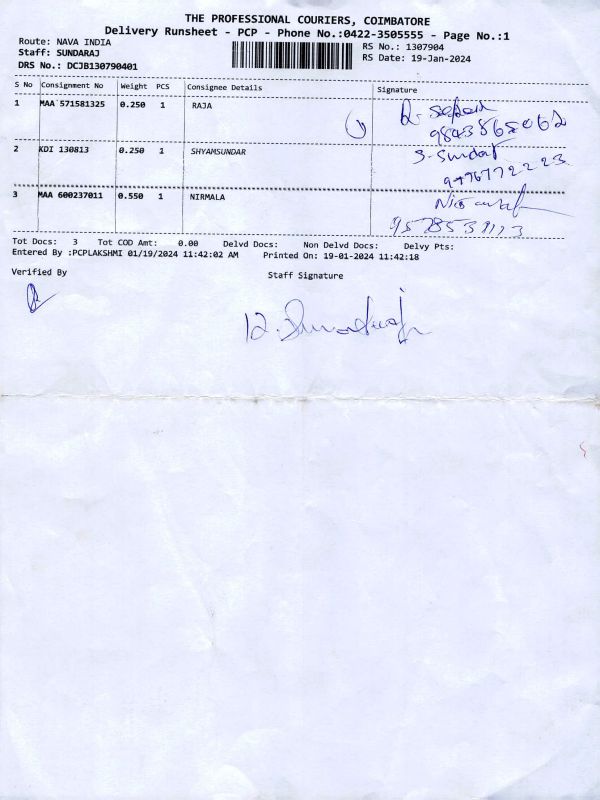 THE PROFESSIONAL COURIERS, COIMBATORE
Delivery Runsheet - PCP - Phone No.:0422-3505555 - Page No.:1
Route: NAVA INDIA RS No.: 1307904
Staff: SUNDARAJ RS Date: 19-Jan-2024
DRS No.: DCJB130790401
S No Consignment No Weight PCS Consignee Details Signature
1 MAA 571581325 0.250 1 RAJA
2 KDI 130813 0.250 1 SHYAMSUNDAR
3 MAA 600237011 0.550 1 NIRMALA
Tot Docs: 3 Tot COD Amt: 0.00 Delvd Docs: Non Delvd Docs: Delvy Pts:
Entered By :PCPLAKSHMI 01/19/2024 11:42:02 AM Printed On: 19-01-2024 11:42:18
Verified By Staff Signature